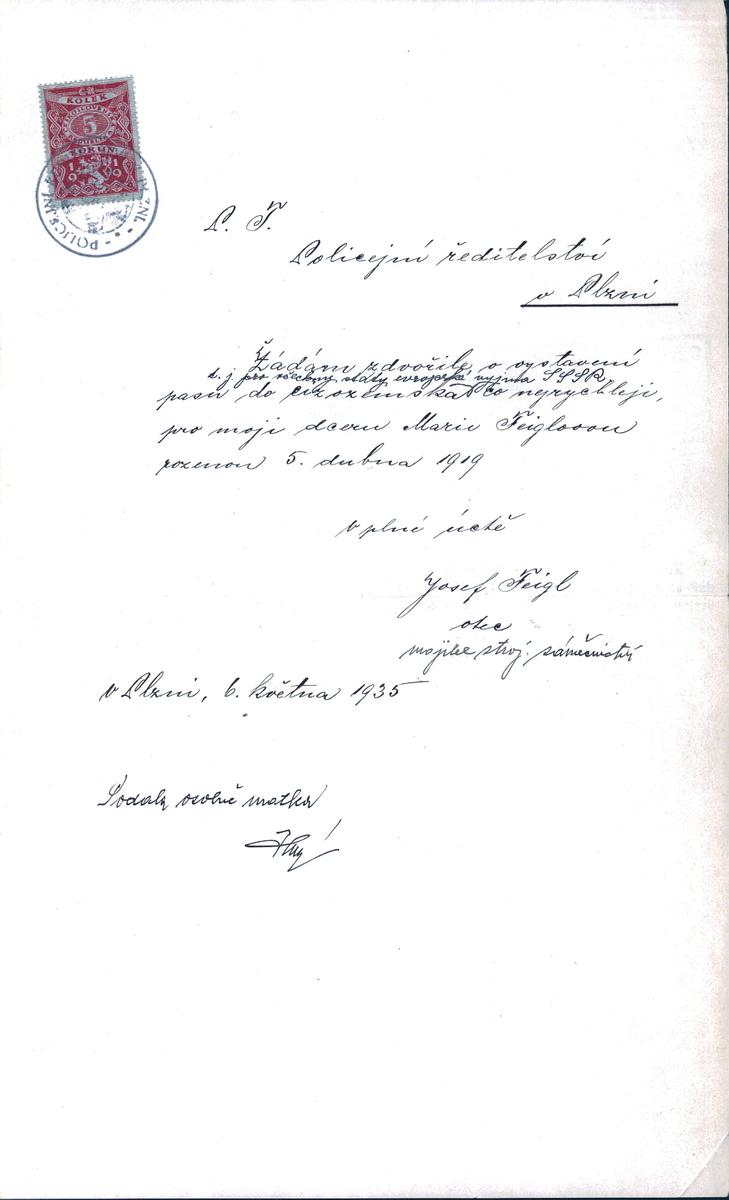 ČS.
KOLEK
5
KORUN
1919
POLICEJNÍ
P. T.
Policejní ředitelství
v Plzni
Žádám zdvořile o vystavení
t. j. pro všechny státy evropské vyjma SSSR
pasu do cizozemska co nejrychleji,
pro moji dceru Marii Feiglovou
rozenou 5. dubna 1919
v plné úctě
Josef Feigl
otec
majitel stroj. zámečnictví
v Plzni, 6. května 1935
Podala osobně matka